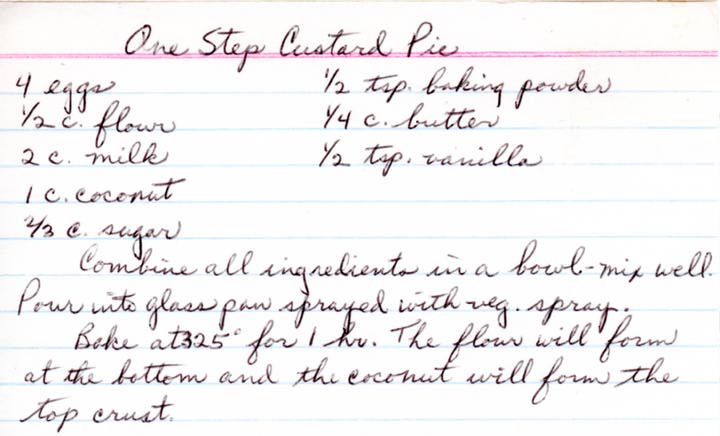 One Step Custard Pie
4 eggs 1/2 tsp. baking powder
1/2 c. flour 1/4 c. butter
2 c. milk 1/2 tsp. vanilla
1 c. coconut
2/3 c. sugar
Combine all ingredients in a bowl-mix well.
Pour into glass pan sprayed with veg. spray.
Bake at 325° for 1 hr. The flour will form
at the bottom and the coconut will form the
top crust.